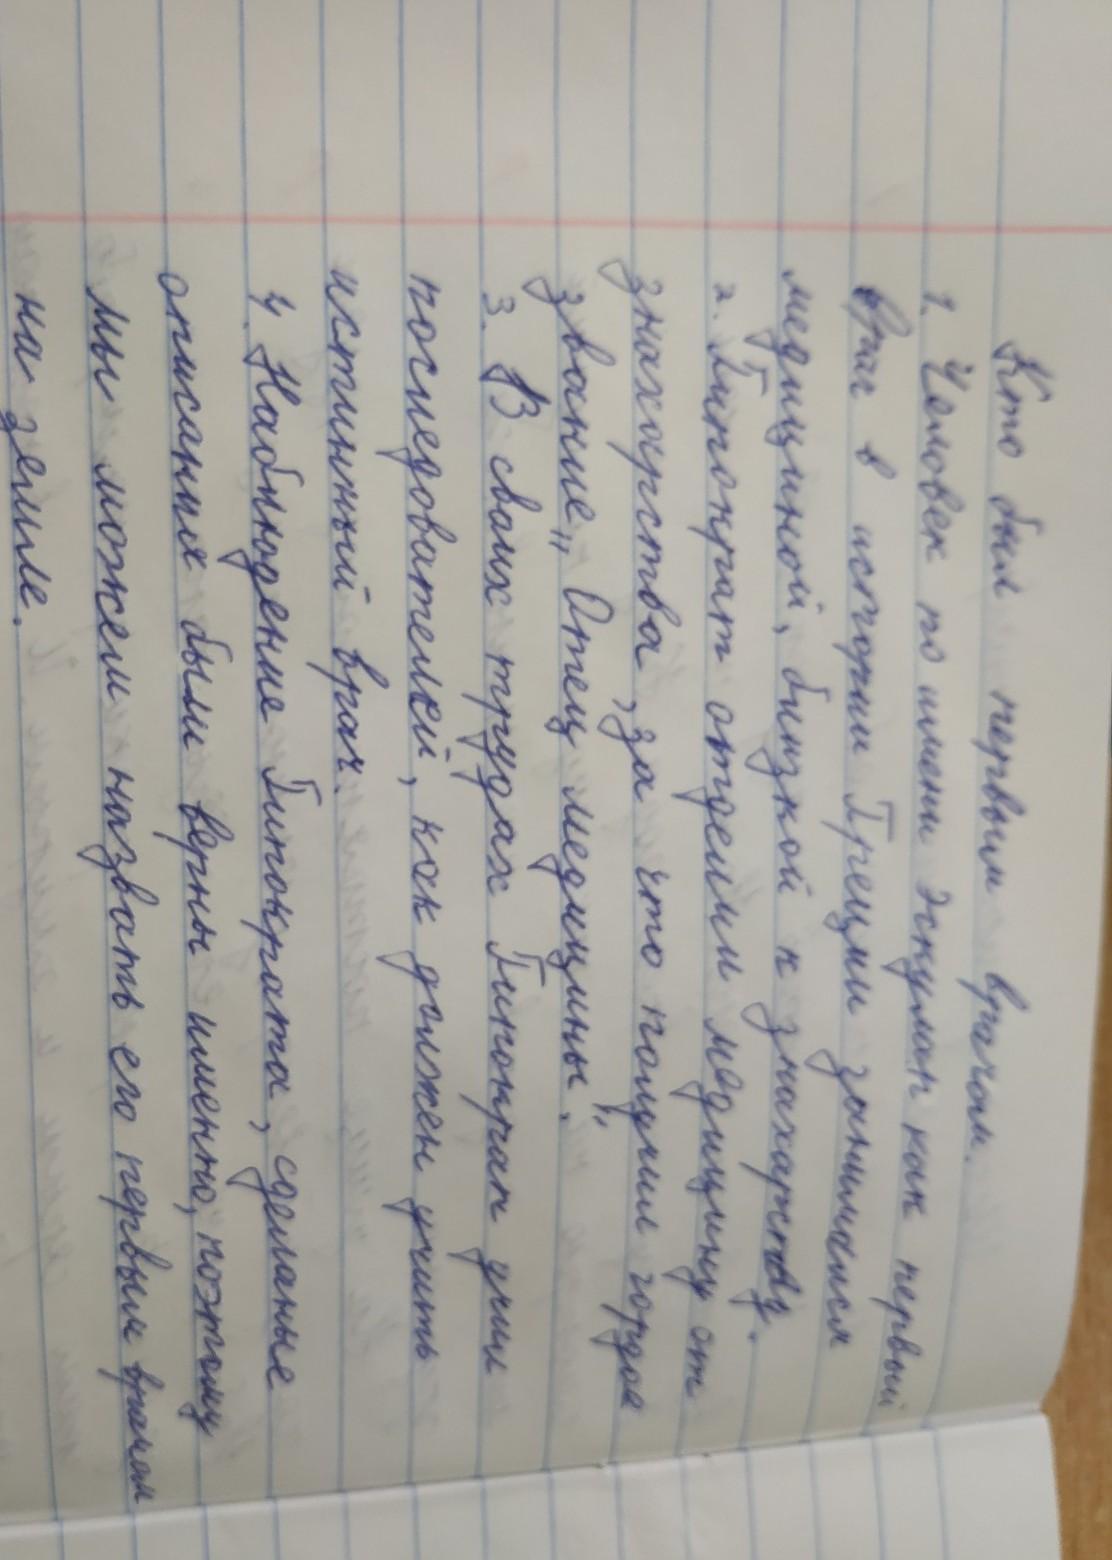 Кто был первым врачом.
1. Человек по имени Эскулап как первый
врач в истории Греции занимался
медициной, близкой к знахарству.
2. Гиппократ отделил медицину от
знахарства, за что получил гордое
звание „Отец медицины".
3. В своих трудах Гипократ учил
последователей, как должен учить
истинный врач.
4. Наблюдение Гипократа, сделаные
описаных были верны именно, поэтому
мы можем назвать его первым врачом
на земле.